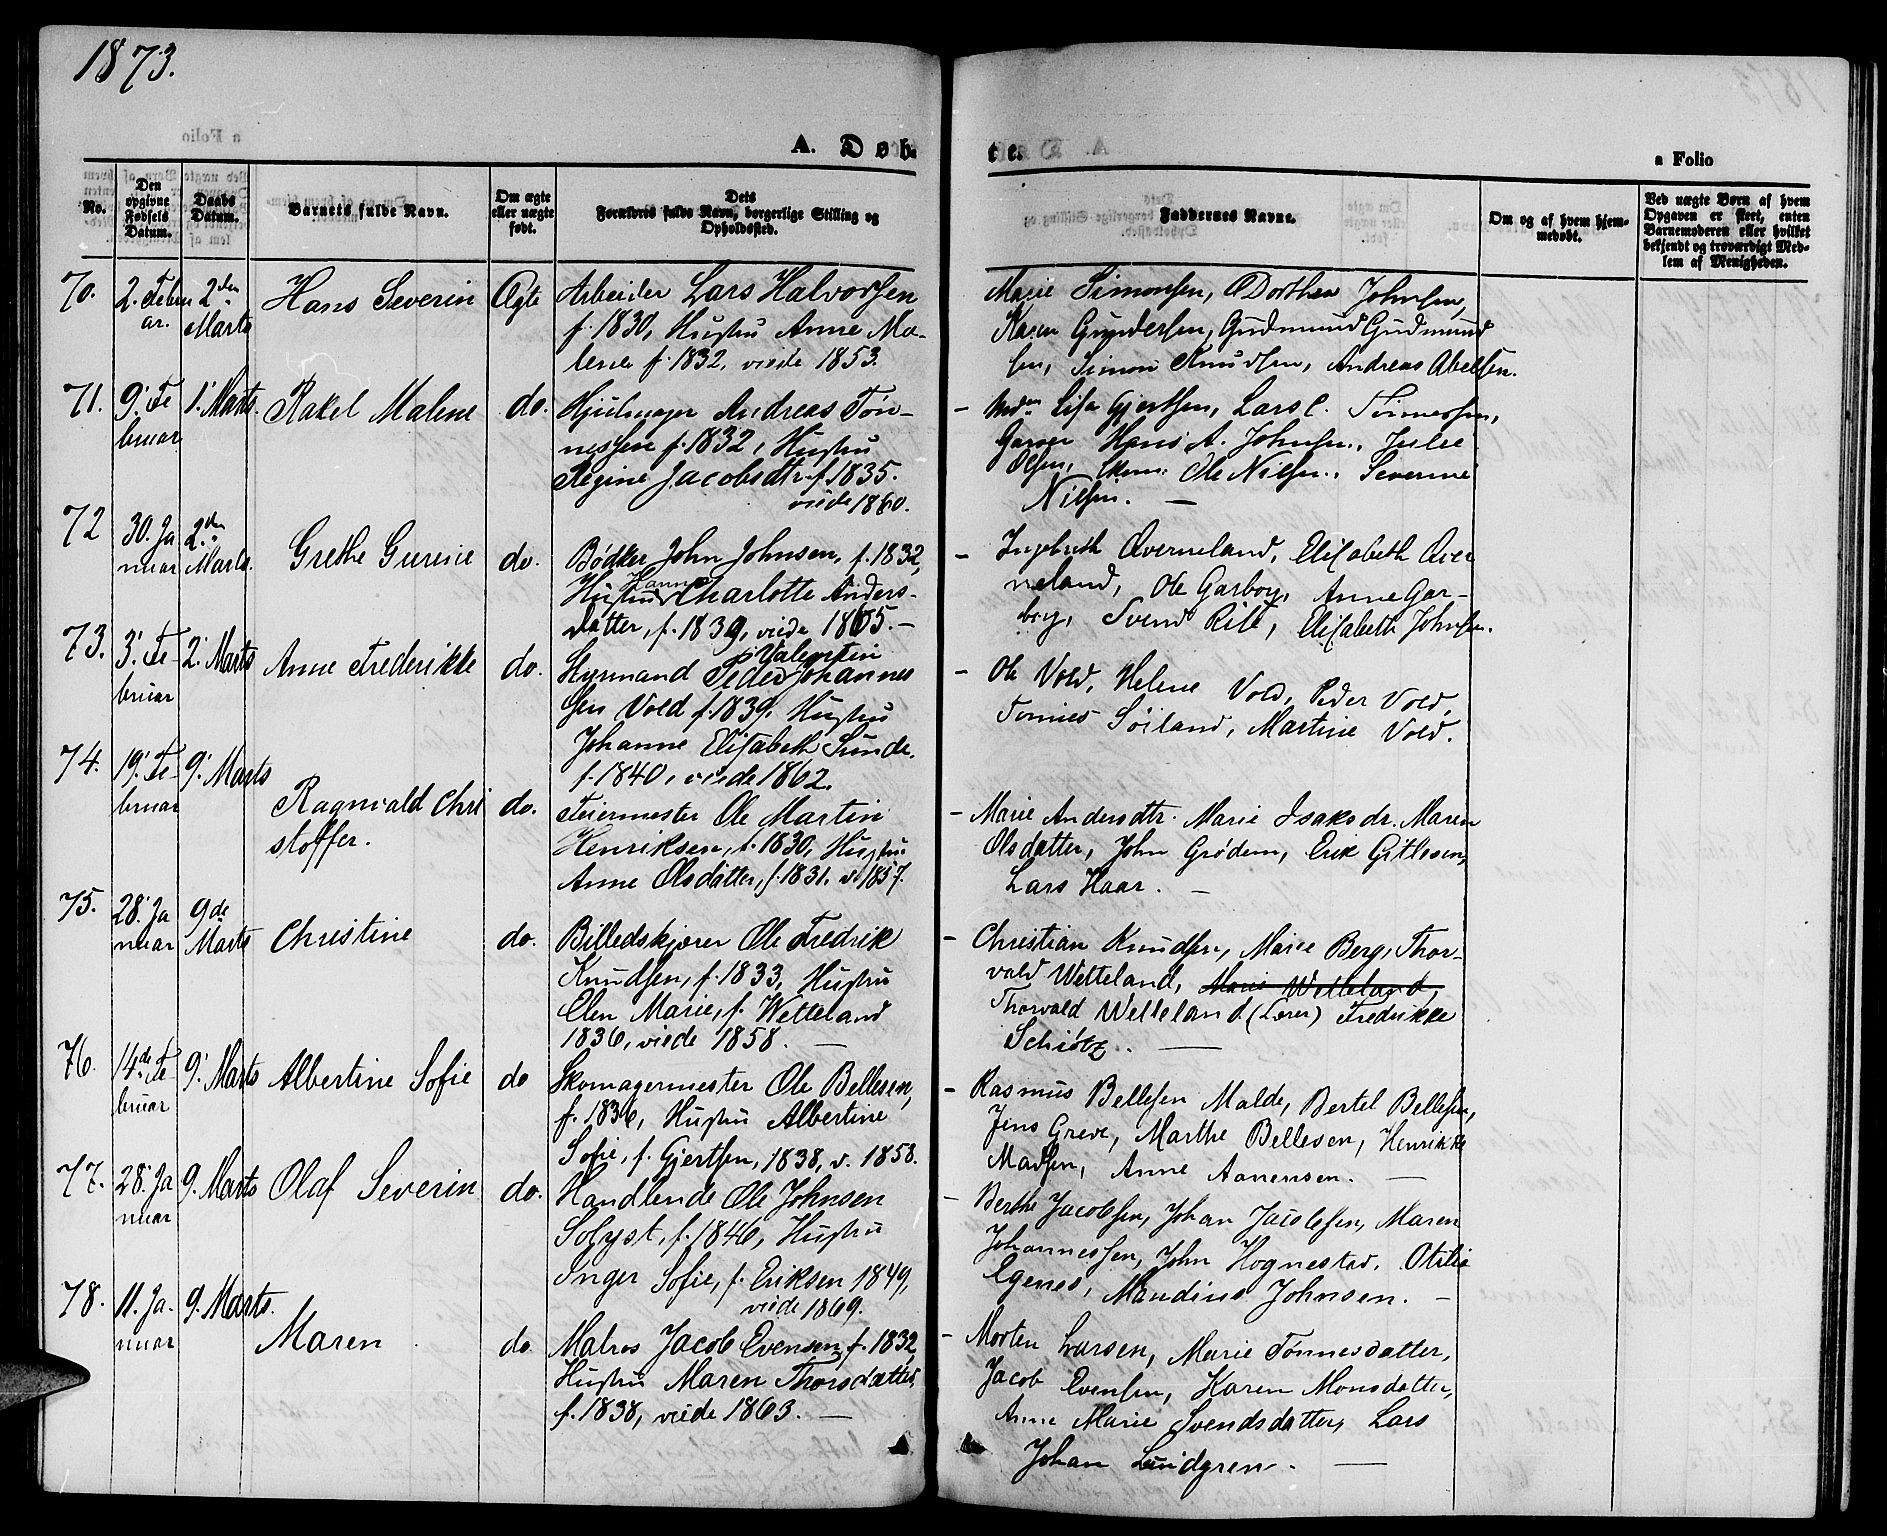 1873.
A. Døb-
te.
a Folio
No.
Den opgivne Fødsels Datum.
Daabs Datum.
Barnets fulde Navn.
Om ægte eller uægte født.
Dets Forældres fulde Navn, borgerlige Stilling og Opholdssted.
Faddernes Navne.
Om og af hvem hjemmedøbt.
Ved uægte Børn af hvem Opgaven er skeet, enten Barnemoderen eller hvilket bekjendt og troværdigt Medlem af Menigheden.
70.
2. Febru
ar.
2den
Marts
Hans Severin
Ægte
Arbeider Lars Halvorsen
f. 1830, Hustru Anne Ma-
lene f. 1832, viede 1853.
Marie Simonsen, Dorthea Johnsen,
Karen Gundersen, Gudmund Gudmund
sen, Simon Knudsen, Andreas Abelsen.
71.
9. Fe
bruar
1. Marts.
Rakel Malene
do.
Hjulmager Andreas Tøn-
nessen f. 1832, Hustru
Regine Jacobsdtr. f. 1835.
viede 1860.
- Lisa Gjertsen, Lars C. Tønnessen,
Garver Hans A. Johnsen, Julie
Olsen, Ole Nilsen, Severine
Nilsen. —
72
30. Ja
nuar
2den
Marts.
Grethe Gurine
do.
Bødker John Johnsen, f. 1832,
Hanne
Hustru Charlotte Anders-
datter, f. 1839, viede 1865. —
- Ingebreth Øverneland, Elisabeth Øver
neland, Ole Garborg, Anne Gar-
borg, Svend Rite, Elisabeth Johnsen.
73.
3. Fe-
bruar
2. Marts
Anne Frederikke
do.
Valentin
Styrmand Peder Johannes
sen Vold f. 1839, Hustru
Johanne Elisabeth Sunde.
f. 1840, viede 1862.
- Ole Vold, Helene Vold, Peder Vold,
Tønnes Søiland, Martine Vold.
74.
19. Fe-
bruar
9. Marts
Ragnvald Chri
stoffer.
do.
Feiermester Ole Martin
Henriksen, f. 1830, Hustru
Anne Olsdatter, f. 1831. v. 1857.
- Marie Andersdtr. Marie Isaksdr. Maren
Olsdatter, John Grødem, Erik Gitlesen,
Lars Haar. —
75.
28. Ja
nuar
9de
Marts
Christine
do.
Billedskjærer Ole Fredrik
Knudsen, f. 1833, Hustru
Elen Marie, f. Wetteland
1836, viede 1858. —
- Christian Knudsen, Marie Berg, Thor-
vald Wetteland, Marie Wetteland,
Thorvald Wetteland (Lærer) Fredrikke
Schiøtz. —
76.
14de Fe
bruar
9. Marts
Albertine Sofie
do
Skomagermester Ole Bellesen,
f. 1836, Hustru Albertine
Sofie, f. Gjertsen, 1838, v. 1858.
- Rasmus Bellesen Malde, Bertel Bellesen,
Jens Greve, Marthe Bellesen, Henrikke
Madsen, Anne Aanensen. —
77.
28. Ja
nuar
9. Marts
Olaf Severin
do.
Handlende Ole Johnsen
Solyst, f. 1846, Hustru
Inger Sofie, f. Eriksen 1849,
viede 1869.
- Berthe Jacobsen, Johan Jacobsen, Maren
Johannessen, John Hognestad, Otilie
Egenes, Maudius Johnsen. —
78.
11. Ja-
nuar
9. Marts.
Maren
do
Matros Jacob Evensen f. 1832,
Hustru Maren Thorsdatter,
f. 1838, viede 1863. —
- Morten Larsen, Marie Tønnesdatter,
Jacob Evensen, Karen Monsdatter,
Anne Marie Svendsdatter, Lars
Johan Lundgren. —